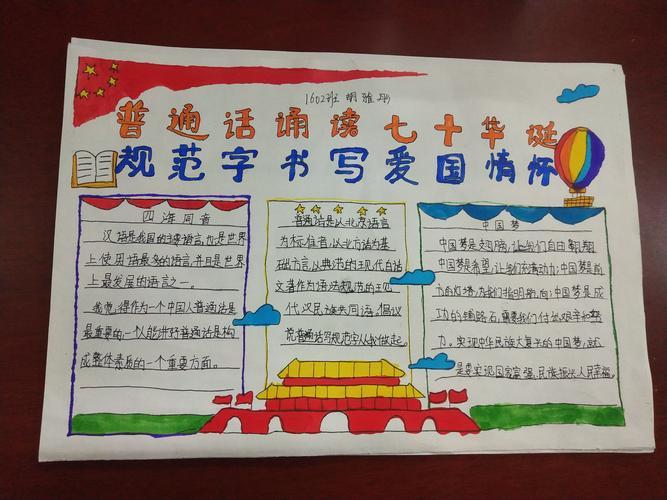 1602班 胡雅
普通话诵读七十华诞
规范字书写爱国情怀
四海同音
汉语是我国的主要语言,也是世界
上使用语最多的语言,并且是世界
上最发展的语言之一。
我觉得作为一个中国人普通话是
最重要的一个能讲好普通话是构
成整体素质的一个重要方面。
普通话是以北京语言
为标准音,以北方话为基
础方言,以典范的现代白话
文著作为语法规范的
代汉民族共同语,倡议
说普通话写规范字从我做起。
中国梦
中国梦是翅膀,让我们自由翱翔
中国梦是希望,让我们充满动力;中国梦是前
方的灯塔,为我们指明航向;中国梦是成
功的铺路石,需要我们付出艰辛和努
力。实现中华民族大复兴的中国梦,就
是要实现国家富强、民族振兴、人民幸福。